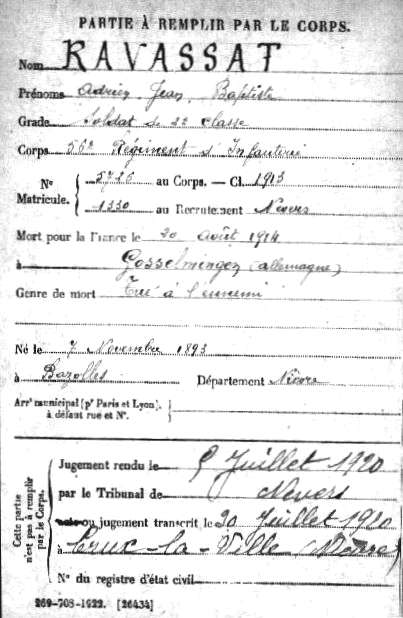 PARTIE À REMPLIR PAR LE CORPS.
Nom RAVASSAT
Prénoms Adrien, Jean, Baptiste
Grade Soldat de 2e classe
Corps 56e Régiment d'Infanterie
N° Matricule. { 5726 au Corps. — Cl. 1913
1330 au Recrutement Nevers
Mort pour la France le 20 août 1914
à Gosselmingen (allemagne)
Genre de mort Tué à l'ennemi
Né le 7 Novembre 1893
à Bazolles Département Nièvre
Arrt municipal (pr Paris et Lyon), à défaut rue et N°.
Cette partie n'est pas à remplir par le Corps.
Jugement rendu le 9 Juillet 1920
par le Tribunal de Nevers
acte ou jugement transcrit le 20 Juillet 1920
à Crux-la-Ville (Nièvre)
N° du registre d'état civil
269-708-1922. [26434]